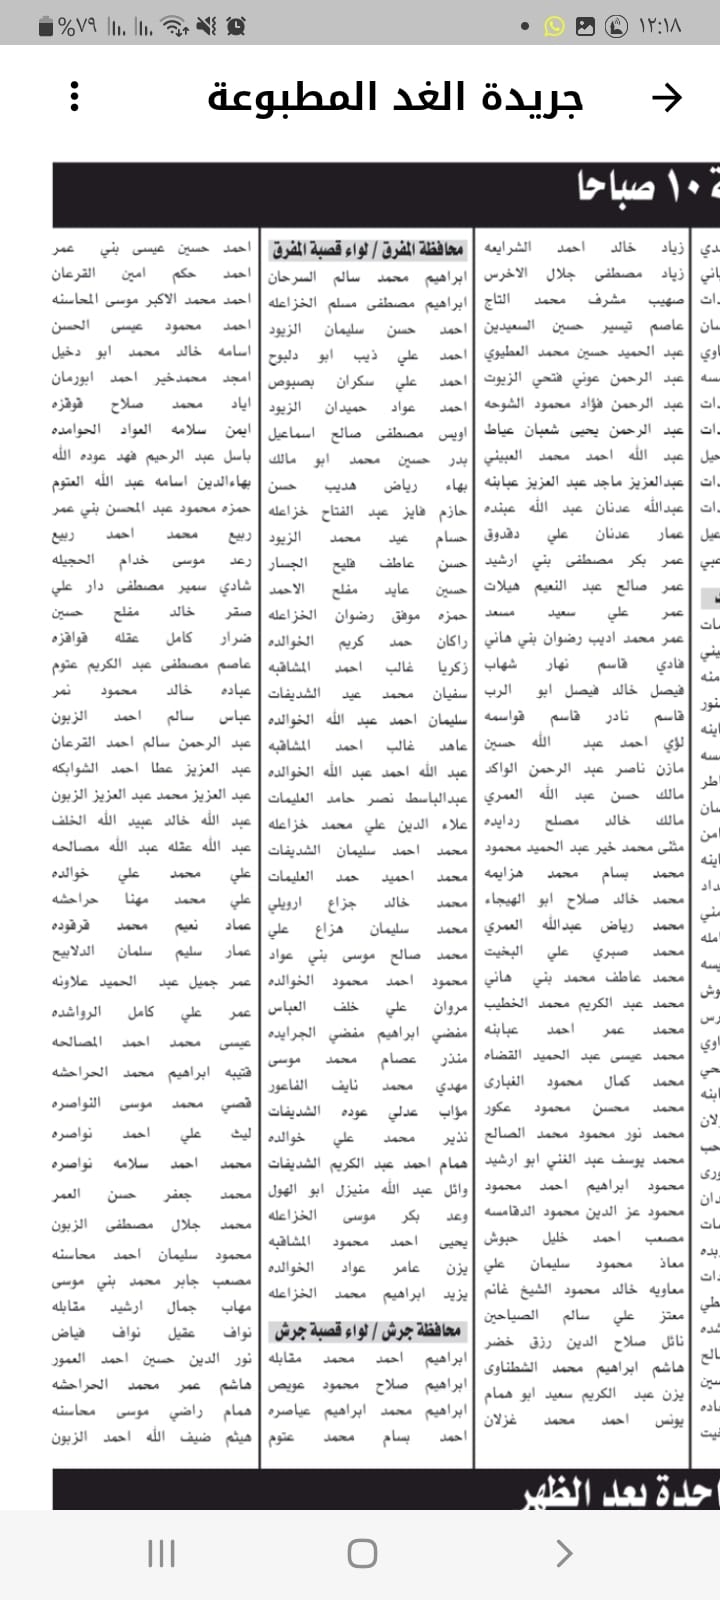 ١٢:١٨
%٧٩
جريدة الغد المطبوعة
١٠ صباحا
زياد خالد احمد الشرايعه
زياد مصطفى جلال الاخرس
صهيب مشرف محمد التاج
عاصم تيسير حسين السعيدين
عبد الحميد حسين محمد العطيوي
عبد الرحمن عوني فتحي الزيوت
عبد الرحمن فؤاد محمود الشوحه
عبد الرحمن يحيى شعبان عياط
عبد الله احمد محمد العبيني
عبدالعزيز ماجد عبد العزيز عبابنه
عبدالله عدنان عبد الله عبنده
عمار عدنان علي دقدوق
عمر بكر مصطفى بني ارشيد
عمر صالح عبد النعيم هيلات
عمر علي سعيد مسعد
عمر محمد اديب رضوان بني هاني
فادي قاسم نهار شهاب
فيصل خالد فيصل ابو الرب
قاسم نادر قاسم قواسمه
لؤي احمد عبد الله حسين
مازن ناصر عبد الرحمن الواكد
مالك حسن عبد الله العمري
مالك خالد مصلح ردايده
مثنى محمد خير عبد الحميد محمود
محمد بسام محمد هزايمه
محمد خالد صلاح ابو الهيجاء
محمد رياض عبدالله العمري
محمد صبري علي البخيت
محمد عاطف محمد بني هاني
محمد عبد الكريم محمد الخطيب
محمد عمر احمد عبابنه
محمد عيسى عبد الحميد القضاه
محمد كمال محمود الغبارى
محمد محسن محمود عكور
محمد نور محمود محمد الصالح
محمد يوسف عبد الغني ابو ارشيد
محمود ابراهيم احمد محمود
محمود عز الدين محمود الدقامسه
مصعب احمد خليل حبوش
معاذ محمود سليمان علي
معاويه خالد محمود الشيخ غانم
معتز علي سالم الصياحين
نائل صلاح الدين رزق خضر
هاشم ابراهيم محمد الشطناوى
يزن عبد الكريم سعيد ابو همام
يونس احمد محمد غزلان
محافظة المفرق / لواء قصبة المفرق
ابراهيم محمد سالم السرحان
ابراهيم مصطفى مسلم الخزاعله
احمد حسن سليمان الزيود
احمد علي ذيب ابو دلبوح
احمد علي سكران بصبوص
احمد عواد حميدان الزيود
اويس مصطفى صالح اسماعيل
بدر حسين محمد ابو مالك
بهاء رياض هديب حسن
حازم فايز عبد الفتاح خزاعله
حسام عيد محمد الزيود
حسن عاطف فليح الجسار
حسين عايد مفلح الاحمد
حمزه موفق رضوان الخزاعله
راكان حمد كريم الخوالده
زكريا غالب احمد المشاقبه
سفيان محمد عيد الشديفات
سليمان احمد عبد الله الخوالده
عاهد غالب احمد المشاقبه
عبد الله احمد عبد الله الخوالده
عبدالباسط نصر حامد العليمات
علاء الدين علي محمد خزاعله
محمد احمد سليمان الشديفات
محمد احميد حمد العليمات
محمد خالد جزاع ارويلي
محمد سليمان هزاع علي
محمد صالح موسى بني عواد
محمود احمد محمود الخوالده
مروان علي خلف العباس
مفضي ابراهيم مفضي الجرايده
منذر عصام محمد موسى
مهدي محمد نايف الفاعور
مؤاب عدلي عوده الشديفات
نذير محمد علي خوالده
همام احمد عبد الكريم الشديفات
وائل عبد الله منيزل ابو الهول
وعد بكر موسى الخزاعله
يحيى احمد محمود المشاقبه
يزن عامر عواد الخوالده
يزيد ابراهيم محمد الخزاعله
محافظة جرش / لواء قصبة جرش
ابراهيم احمد محمد مقابله
ابراهيم صلاح محمود عويص
ابراهيم محمد ابراهيم عياصره
احمد بسام محمد عتوم
احمد حسين عيسى بني عمر
احمد حكم امين القرعان
احمد محمد الاكبر موسى المحاسنه
احمد محمود عيسى الحسن
اسامه خالد محمد ابو دخيل
امجد محمدخير احمد ابورمان
اياد محمد صلاح قوقزه
ايمن سلامه العواد الحوامده
باسل عبد الرحيم فهد عوده الله
بهاءالدين اسامه عبد الله العتوم
حمزه محمود عبد المحسن بني عمر
ربيع محمد احمد ربيع
رعد موسى خدام الحجيله
شادي سمير مصطفى دار علي
صقر خالد مفلح حسين
ضرار كامل عقله قواقزه
عاصم مصطفى عبد الكريم عتوم
عباده خالد محمود نمر
عباس سالم احمد الزبون
عبد الرحمن سالم احمد القرعان
عبد العزيز عطا احمد الشوابكه
عبد العزيز محمد عبد العزيز الزبون
عبد الله خالد عبيد الله الخلف
عبد الله عقله عبد الله مصالحه
علي محمد علي خوالده
علي محمد مهنا حراحشه
عماد نعيم محمد قرقوده
عمار سليم سلمان الدلابيح
عمر جميل عبد الحميد علاونه
عمر علي كامل الرواشده
عيسى محمد احمد المصالحه
قتيبه ابراهيم محمد الحراحشه
قصي محمد موسى النواصره
ليث علي احمد نواصره
محمد احمد سلامه نواصره
محمد جعفر حسن العمر
محمد جلال مصطفى الزبون
محمود سليمان احمد محاسنه
مصعب جابر محمد بني موسى
مهاب جمال ارشيد مقابله
نواف عقيل نواف فياض
نور الدين حسين احمد العمور
هاشم عمر محمد الحراحشه
همام راضي موسى محاسنه
هيثم ضيف الله احمد الزبون
احدة بعد الظهر